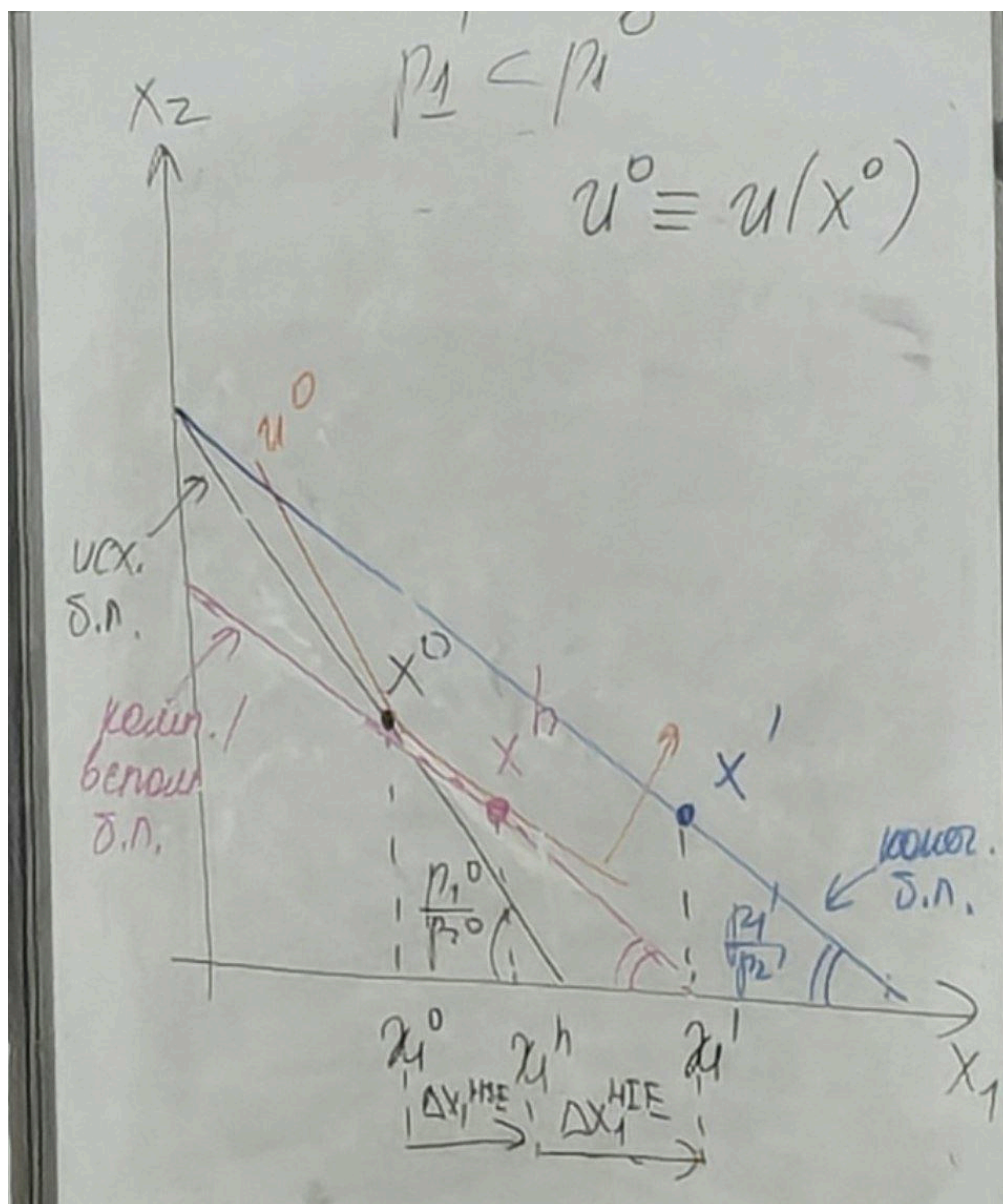 p₁' < p₁⁰
x₂
u⁰ ≡ u(x⁰)
u⁰
исх.
б.л.
x⁰
комп./
вспом
б.л.
xʰ
x'
конеч.
б.л.
p₁⁰/p₂⁰
p₁'/p₂'
x₁⁰
x₁ʰ
x₁'
x₁
Δx₁ᴴˢᴱ
Δx₁ᴴᴵᴱ